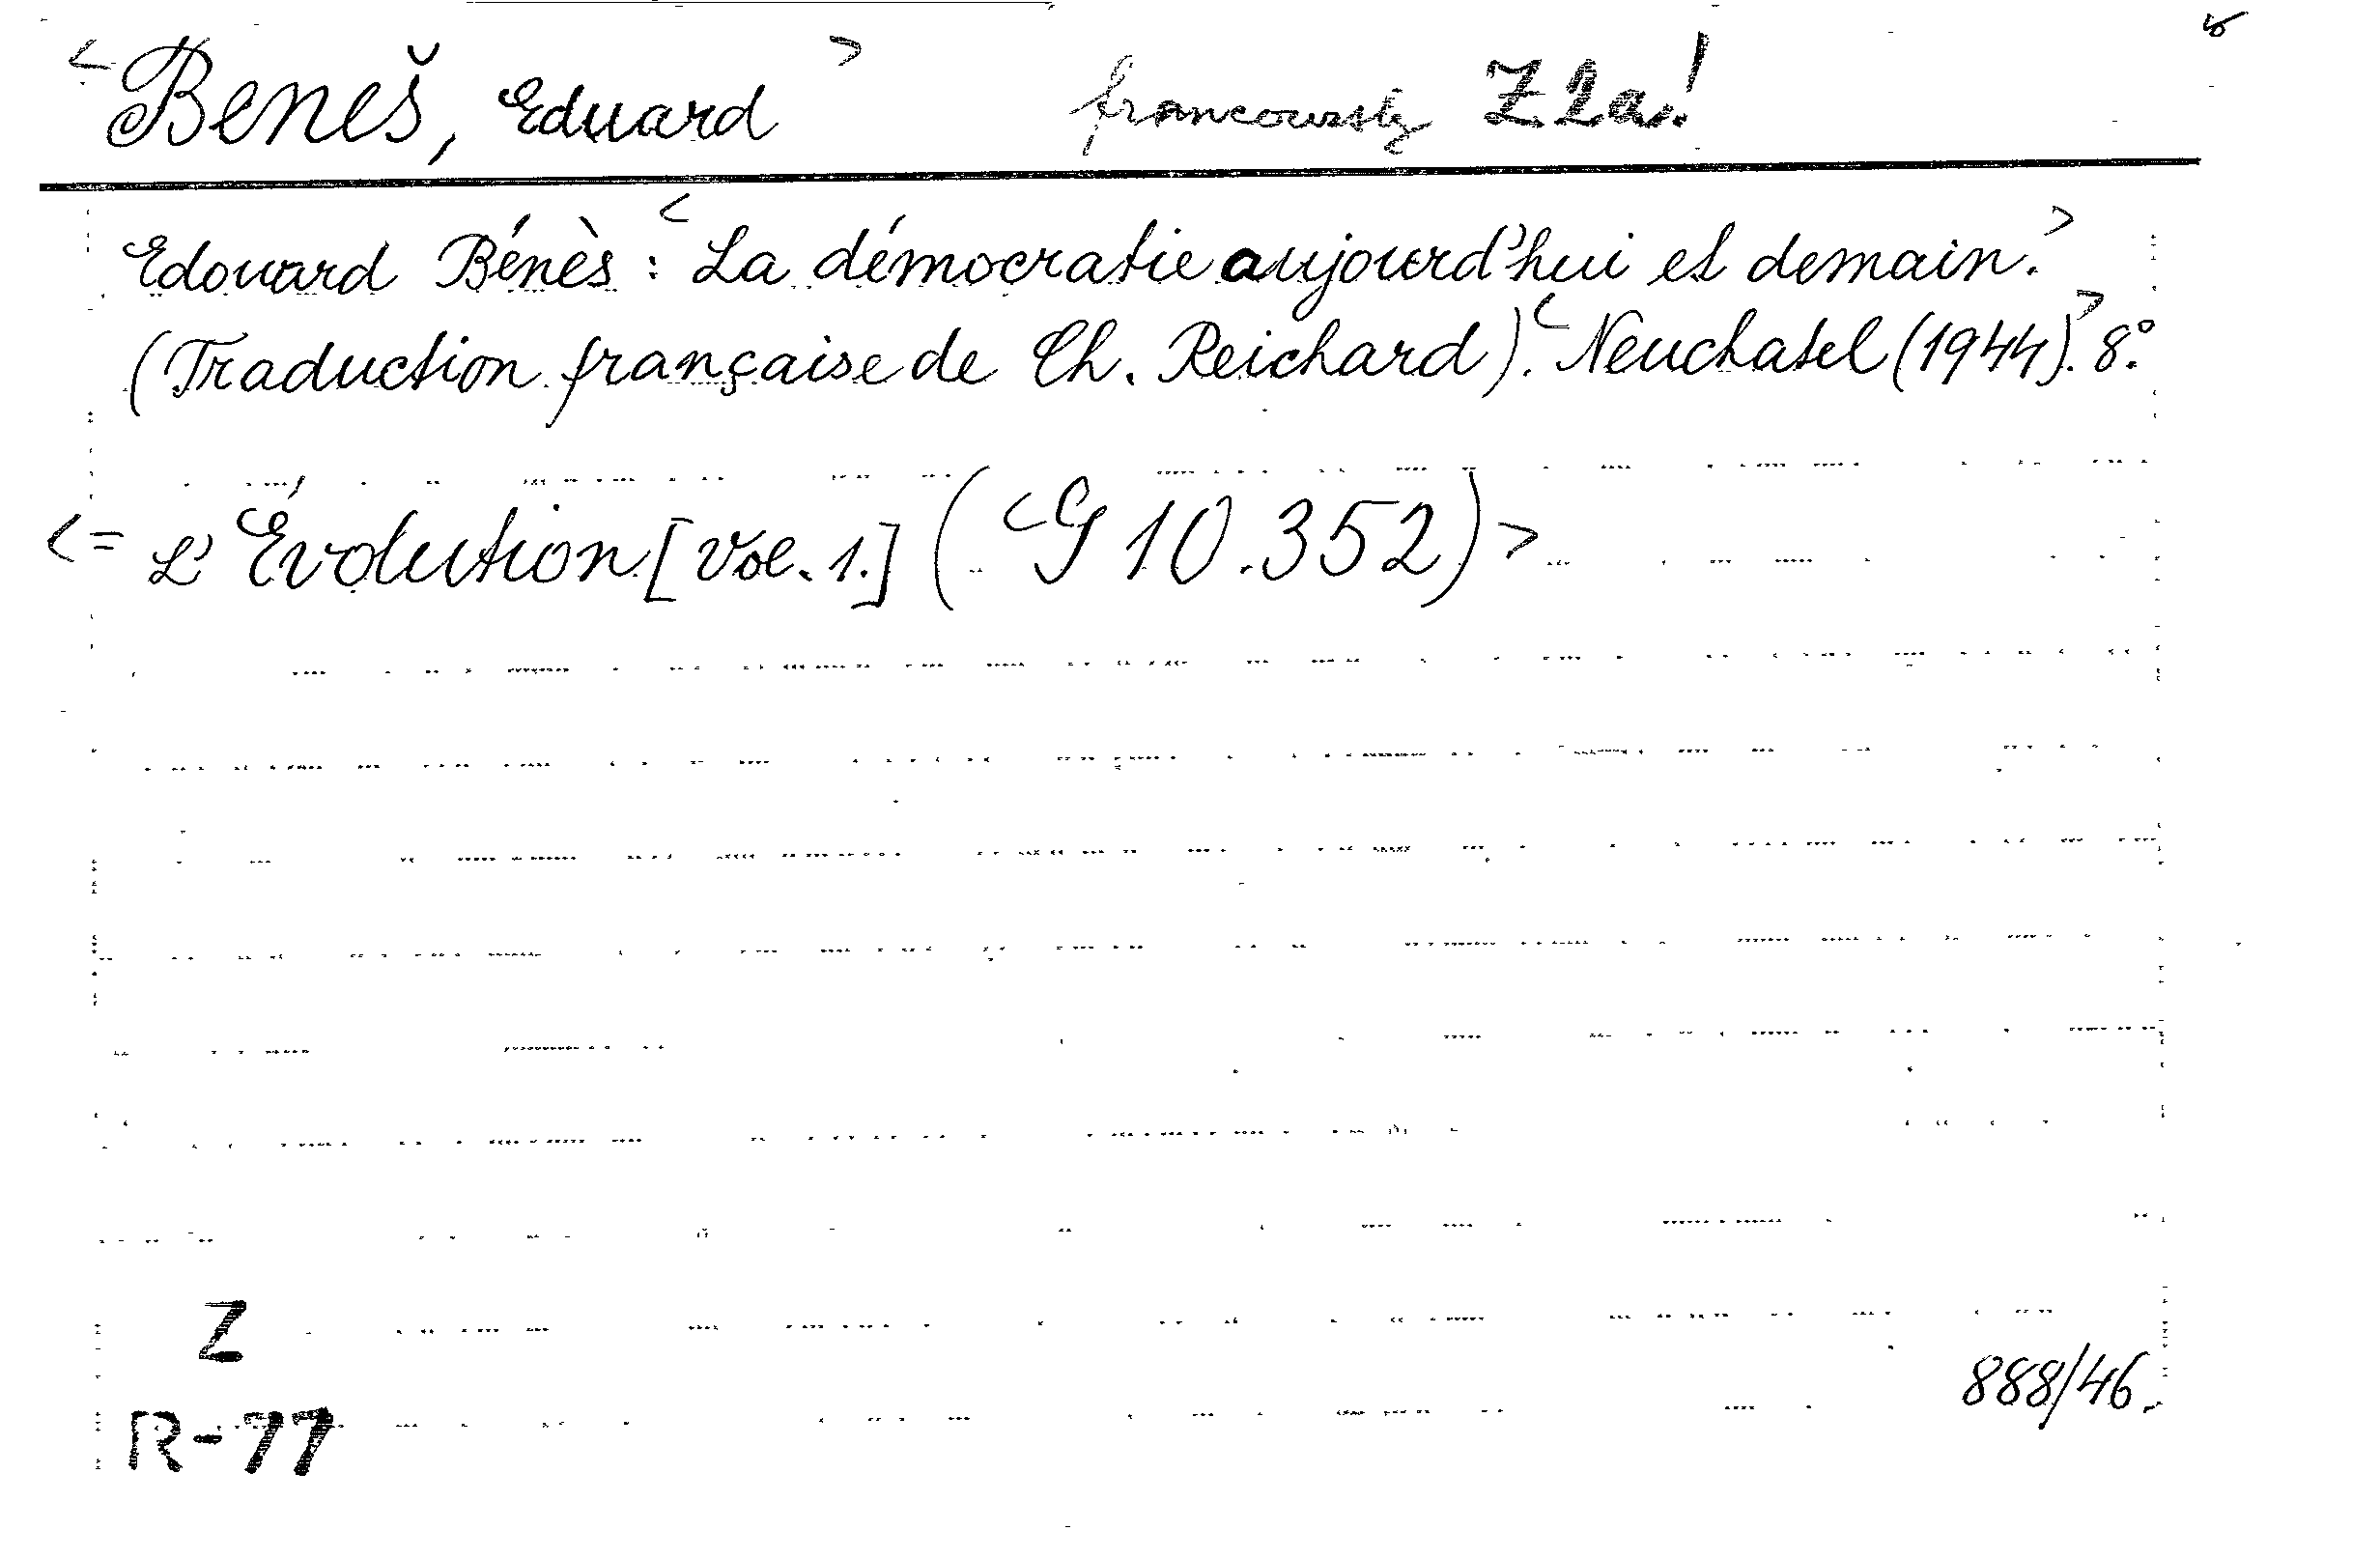 <Beneš, Eduard> francouzsky Z 2a!
Edouard Bénès: <La démocratie aujourd'hui et demain.>
(Traduction française de Ch. Reichard). <Neuchatel (1944).> 8°.
<= L'Évolution [Vol. 1.] (<G 10.352)>
Z
R-77
888/46.